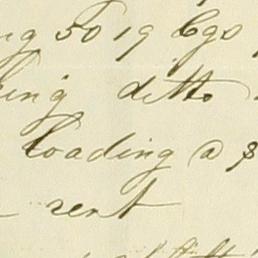 ng 5019 Bgs
ling ditto
loading @ $
rent